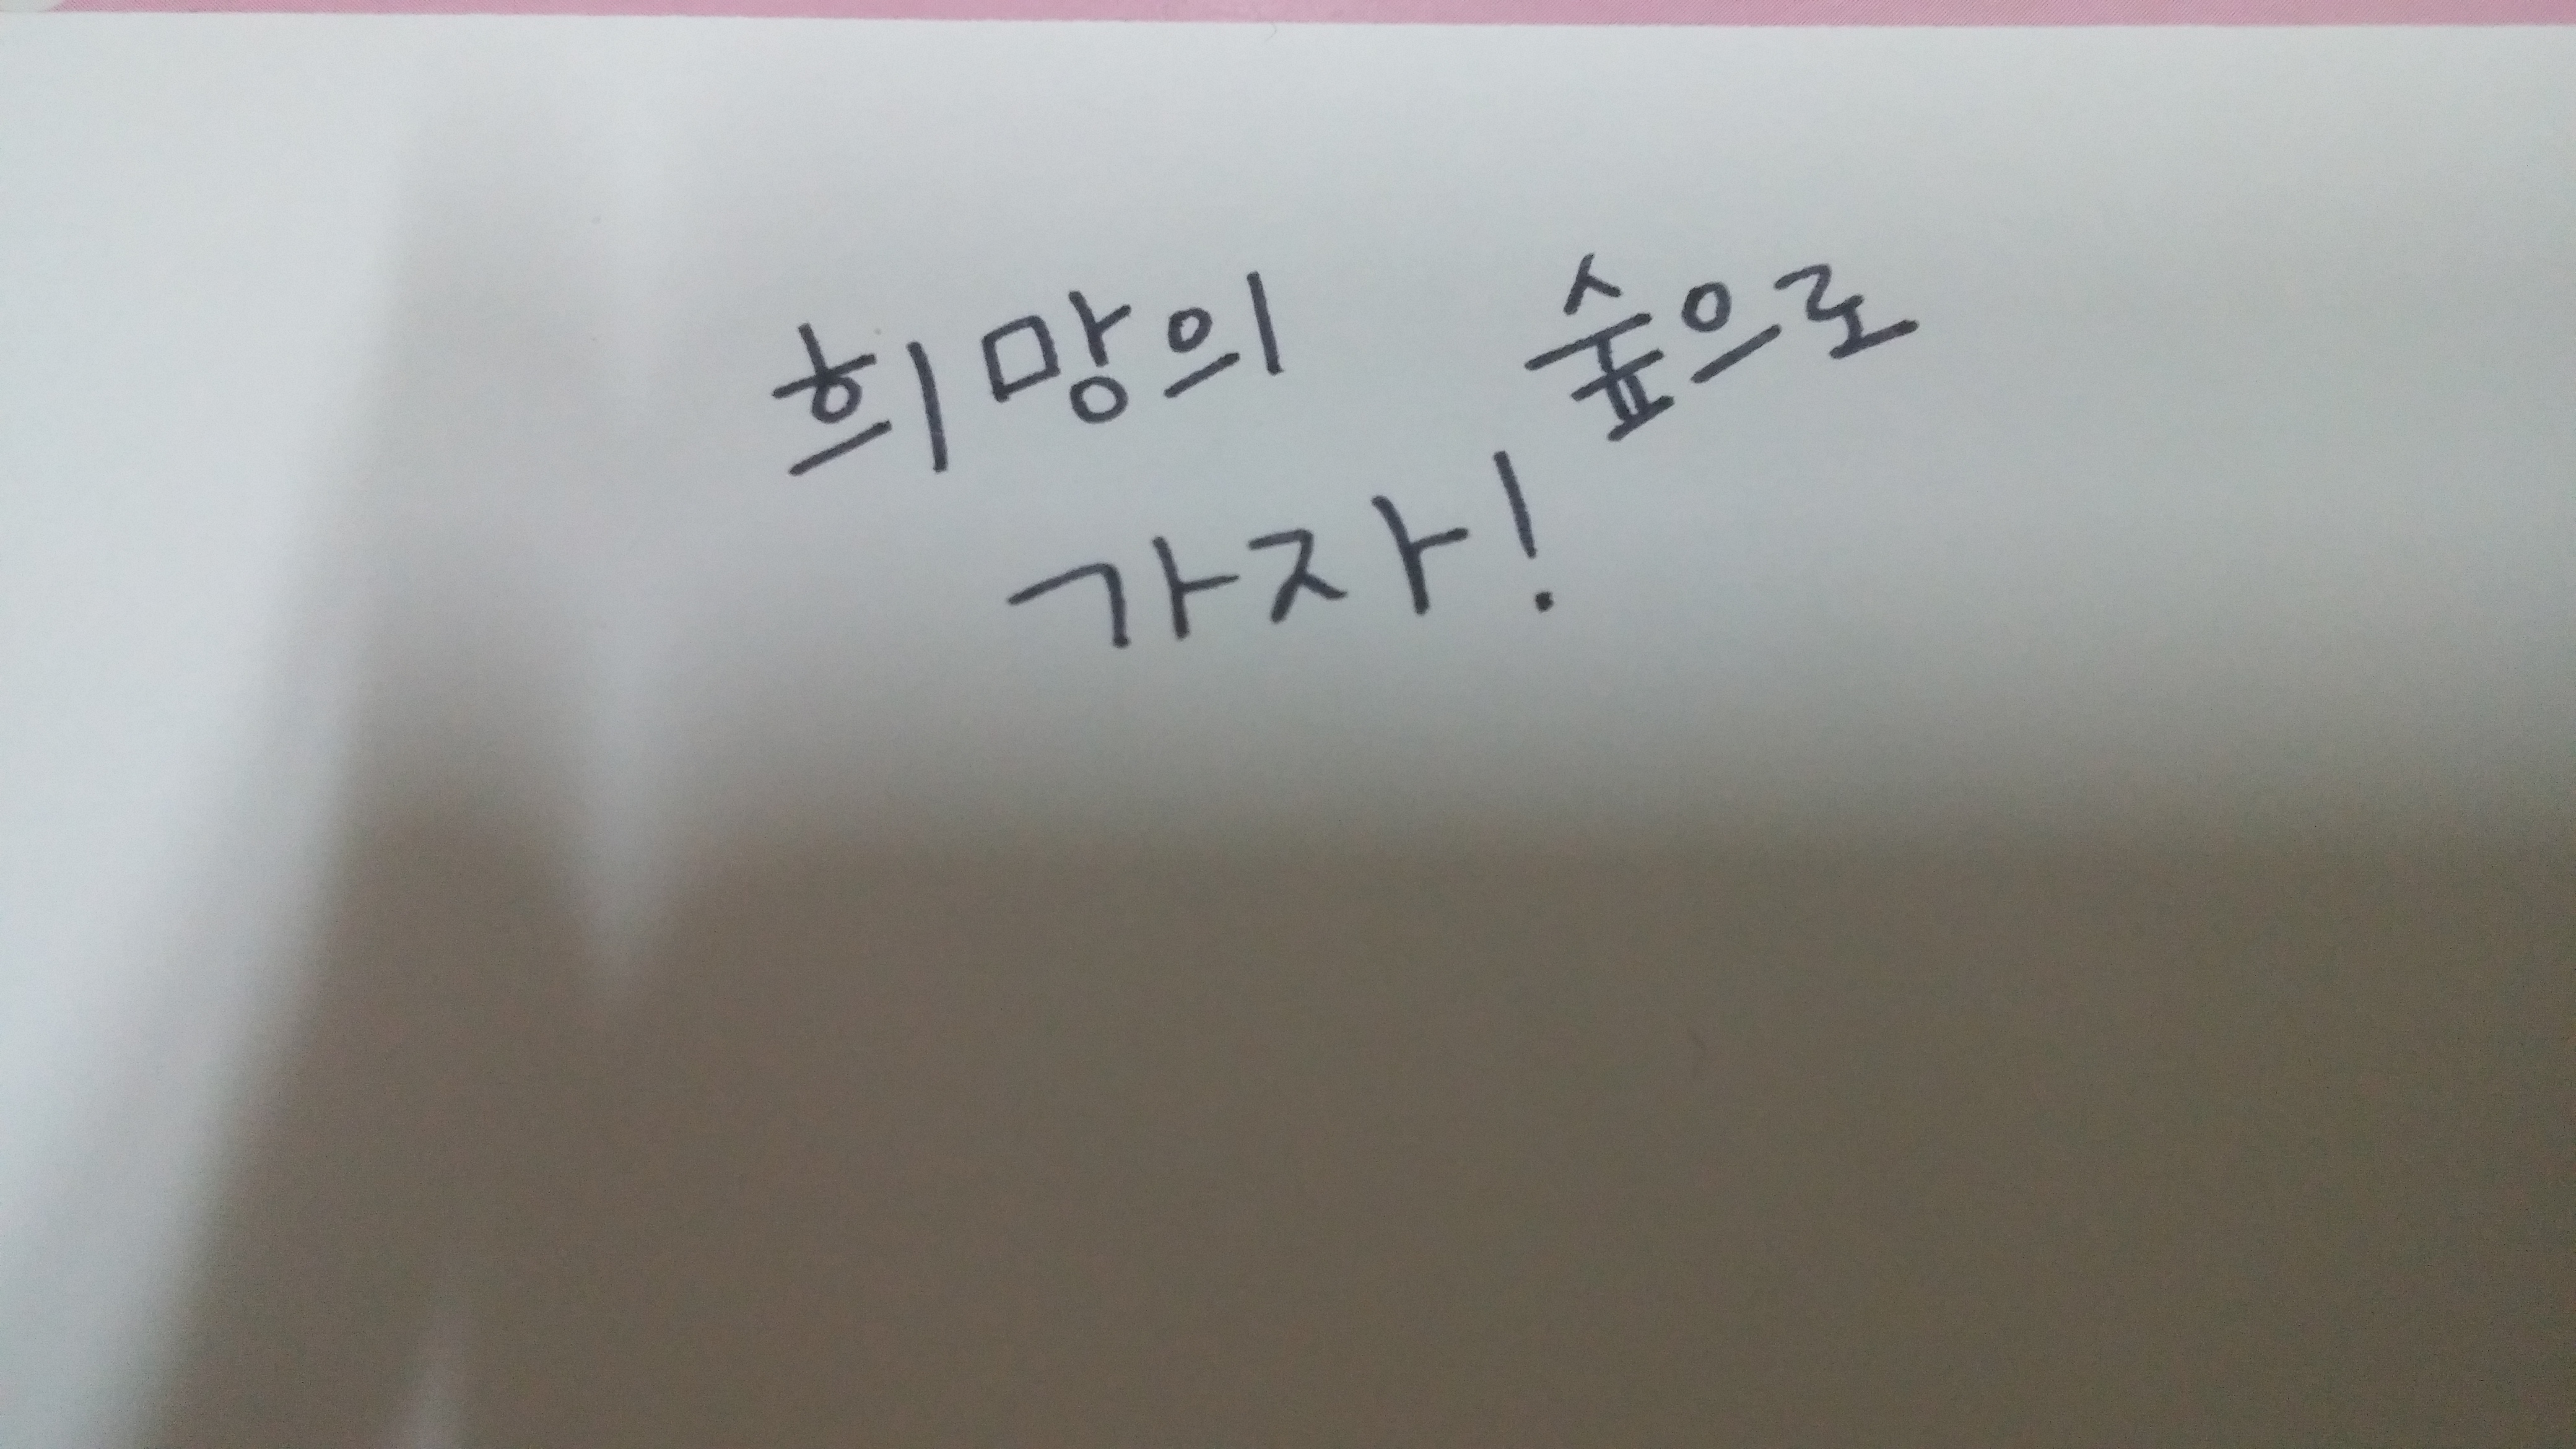 희망의 숲으로
가자!